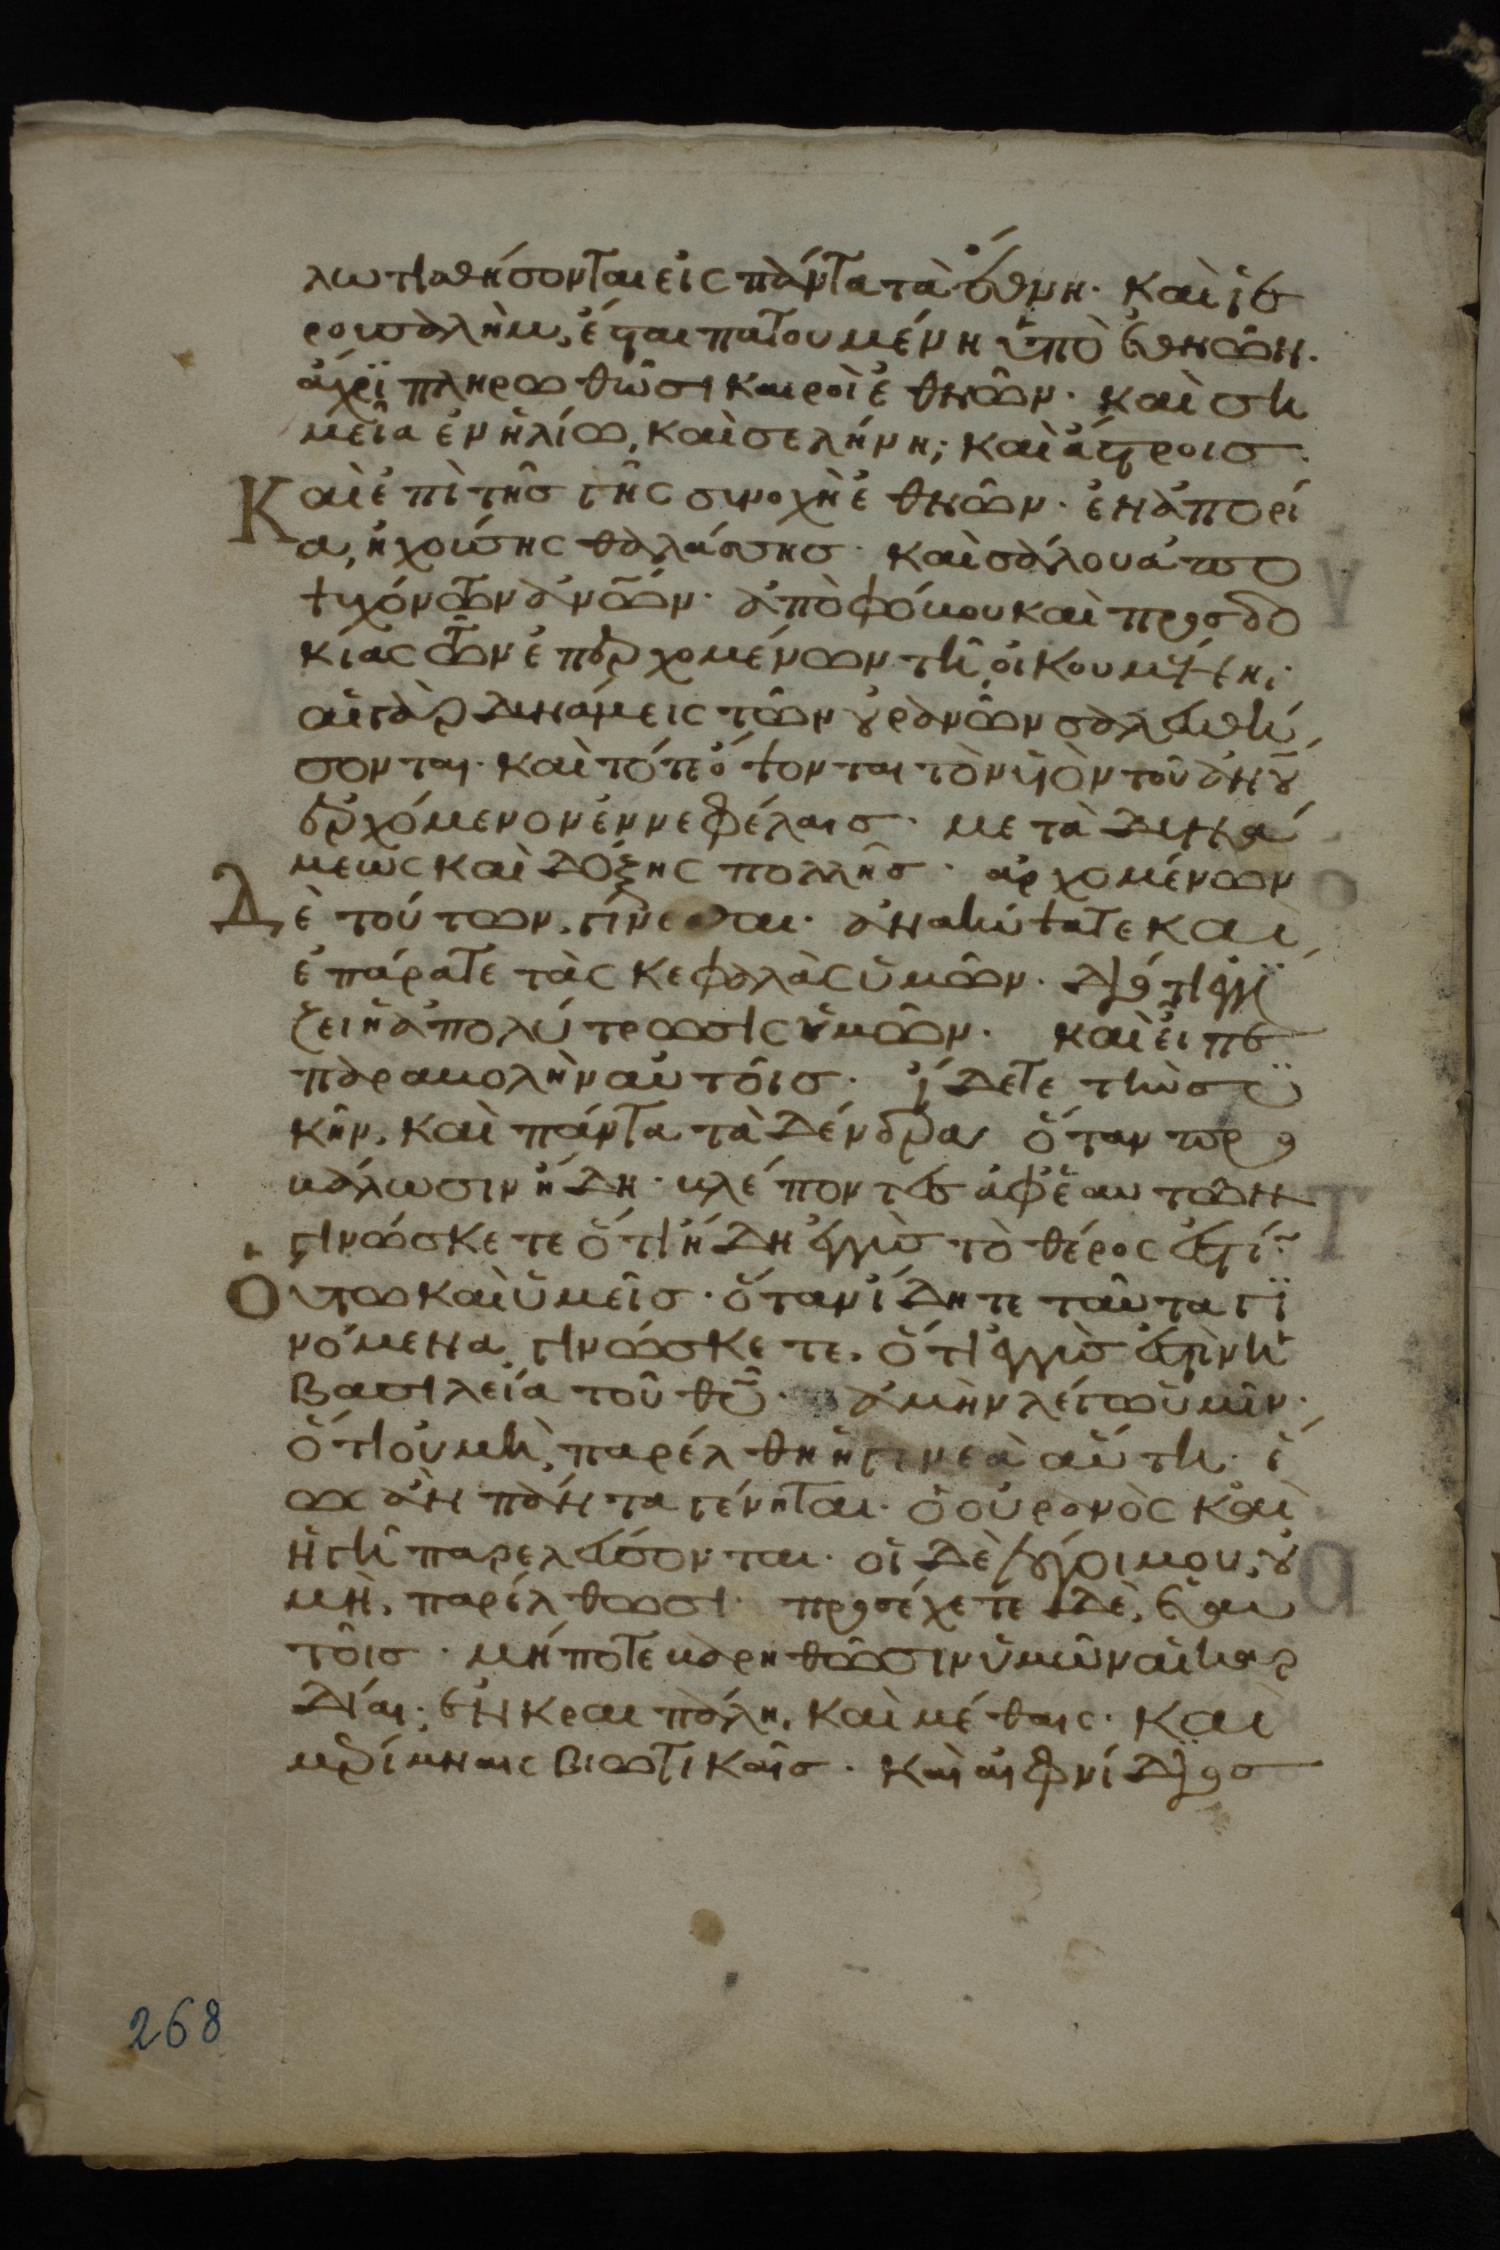 λωτισθήσονται εἰς πάντα τὰ ἔθνη· καὶ ἱε
ρουσαλὴμ, ἔσται πατουμένη ὑπὸ ἐθνῶν·
ἄχρϊ πληρωθῶσι καιροὶ ἐθνῶν· καὶ ση
μεῖα ἐν ἡλίω, καὶ σελήνη, καὶ ἄστροισ·
Καὶ ἐπὶ τῆσ γῆς συνοχὴ ἐθνῶν· ἐν ἀπορί
α, ἠχούσης θαλάσσησ· καὶ σάλου ἀπο
ψυχόντων ἀνων· ἀπὸ φόβου καὶ προσδο
κίας τῶν ἐπερχομένων τῆ οἰκουμένη·
αἱ γὰρ δυνάμεις τῶν οὐρανῶν σαλευθή
σονται· καὶ τότε ὄψονται τὸν υἱὸν τοῦ ἀνου
ἐρχόμενον ἐν νεφέλαισ· μετὰ δυνά
μεως καὶ δόξης πολλῆσ· ἀρχομένων
Δὲ τούτων, γίνεσθαι· ἀνακύψατε καὶ
ἐπάρατε τὰς κεφαλὰς ὑμῶν· διότι ἐγγϊ
ζει ἡ ἀπολύτρωσις ὑμῶν· καὶ εἶπε
παραβολὴν αὐτοῖσ· ἴδετε τὴν συ
κῆν, καὶ πάντα τὰ δένδρα ὅταν προ
βάλωσιν ἤδη· βλέποντες ἀφ' ἑαυτῶν
γινώσκετε ὅτι ἤδη ἐγγὺσ τὸ θέρος ἐστί·
Ούτω καὶ ὑμεῖσ· ὅταν ἴδητε ταῦτα γϊ
νόμενα, γινώσκετε, ὅτι ἐγγὺσ ἐστὶν ἡ
βασιλεία τοῦ θυ· ἀμὴν λέγω ὑμῖν·
ὅτι οὐ μὴ παρέλθη ἡ γενεὰ αὕτη· ἕ
ως ἂν πάντα γένηται· ὁ οὐρανὸς καὶ
ἡ γῆ παρελεύσονται· οἱ δὲ λόγοι μου, οὐ
μὴ, παρέλθωσι· προσέχετε δὲ, ἑαυ
τοῖσ· μήποτε βαρηθῶσιν ὑμῶν αἱ καρ
δίαι· ἐν κραιπάλη, καὶ μέθαις· καὶ
μερίμναις βιωτικαῖσ· καὶ αἰφνίδιοσ
268